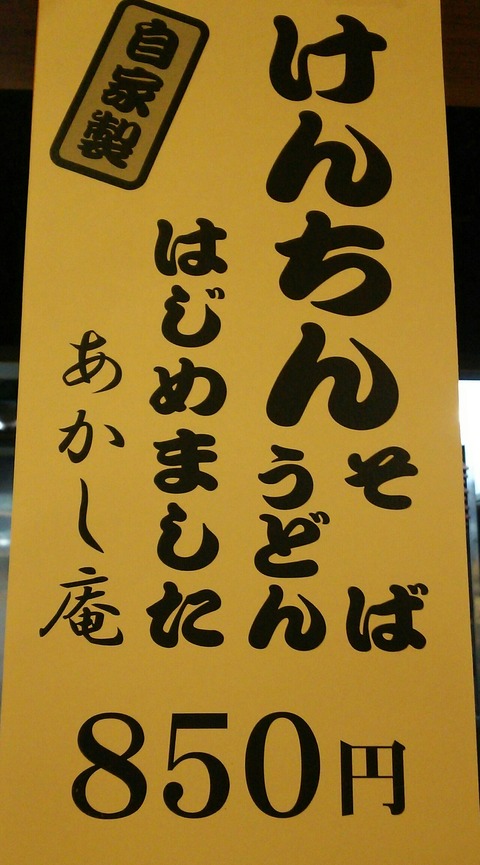 自家製
けんちん
そば
うどん
はじめました
あかし庵
850円